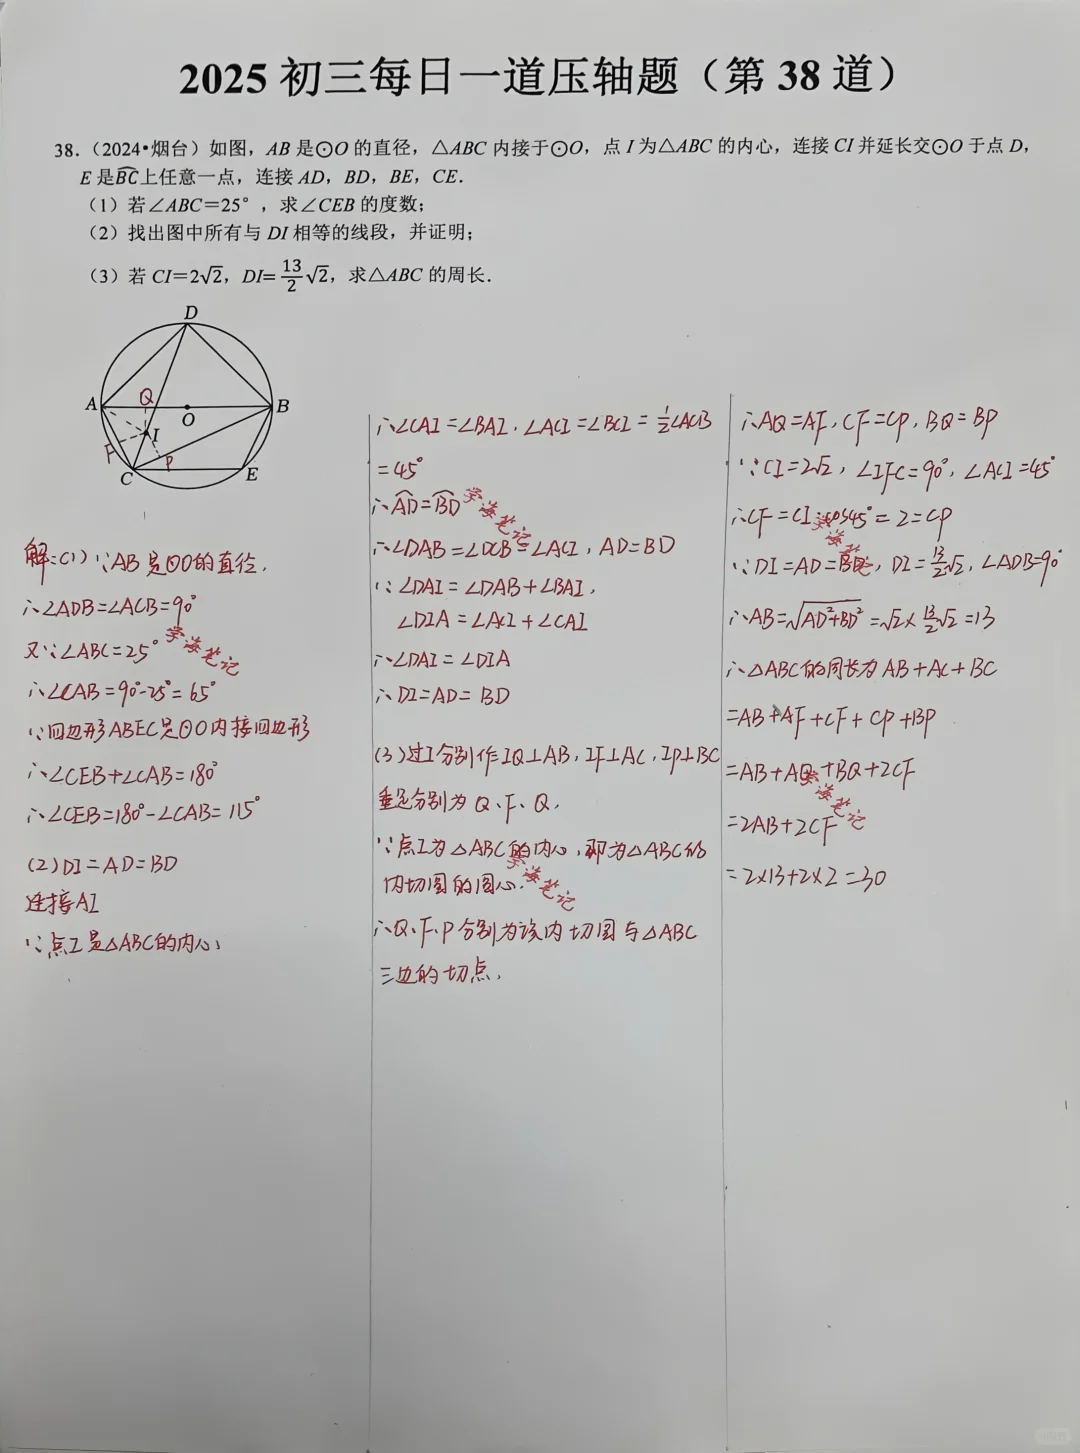 2025 初三每日一道压轴题（第 38 道）
38.（2024•烟台）如图，AB 是⊙O 的直径，△ABC 内接于⊙O，点 I 为△ABC 的内心，连接 CI 并延长交⊙O 于点 D，
E 是B͡C上任意一点，连接 AD，BD，BE，CE．
（1）若∠ABC＝25°，求∠CEB 的度数；
（2）找出图中所有与 DI 相等的线段，并证明；
（3）若 CI＝2√2，DI= 13/2 √2，求△ABC 的周长．
D
A
Q
O
B
I
F
P
C
E
解:(1)∵AB是⊙O的直径,
∴∠ADB=∠ACB=90°
又∵∠ABC=25°
学海笔记
∴∠CAB=90°-25°=65°
∵四边形ABEC是⊙O内接四边形
∴∠CEB+∠CAB=180°
∴∠CEB=180°-∠CAB=115°
(2)DI=AD=BD
连接AI
∵点I是△ABC的内心,
∴∠CAI=∠BAI,∠ACI=∠BCI=1/2∠ACB
=45°
∴A͡D=B͡D
学海笔记
∴∠DAB=∠DCB=∠ACI,AD=BD
∵∠DAI=∠DAB+∠BAI,
∠DIA=∠ACI+∠CAI
∴∠DAI=∠DIA
∴DI=AD=BD
(3)过I分别作IQ⊥AB,IF⊥AC,IP⊥BC
垂足分别为Q、F、Q.
∵点I为△ABC的内心,即为△ABC的
内切圆的圆心.
学海笔记
∴Q、F、P分别为该内切圆与△ABC
三边的切点,
∴AQ=AF,CF=CP,BQ=BP
∵CI=2√2,∠IFC=90°,∠ACI=45°
∴CF=CI·cos45°=2=CP
学海笔记
∵DI=AD=BD,DI=13/2√2,∠ADB=90°
∴AB=√(AD²+BD²)=√2×13/2√2=13
∴△ABC的周长为AB+AC+BC
=AB+AF+CF+CP+BP
=AB+AQ+BQ+2CF
学海笔记
=2AB+2CF
=2×13+2×2=30